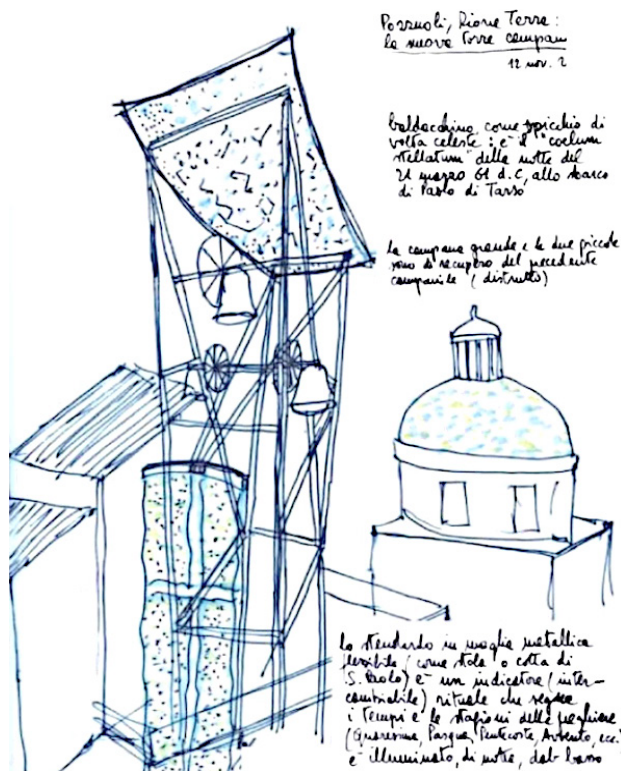 Pozzuoli, Rione Terra:
la nuova torre campan
12 nov. 2
baldacchino, come spicchio di
volta celeste: è il "coelum
stellatum" della notte del
21 marzo 61 d.C, allo sbarco
di Paolo di Tarso
La campana grande e le due piccole
sono di recupero del precedente
campanile (distrutto)
Lo stendardo in maglia metallica
flessibile (come stola o cotta di
S. Paolo) è un indicatore (inter-
cambiabile) rituale che segna
i tempi e le stagioni delle preghiere
(Quaresima, Pasqua, Pentecoste, Avvento, ecc.
è illuminato, di notte, dal basso